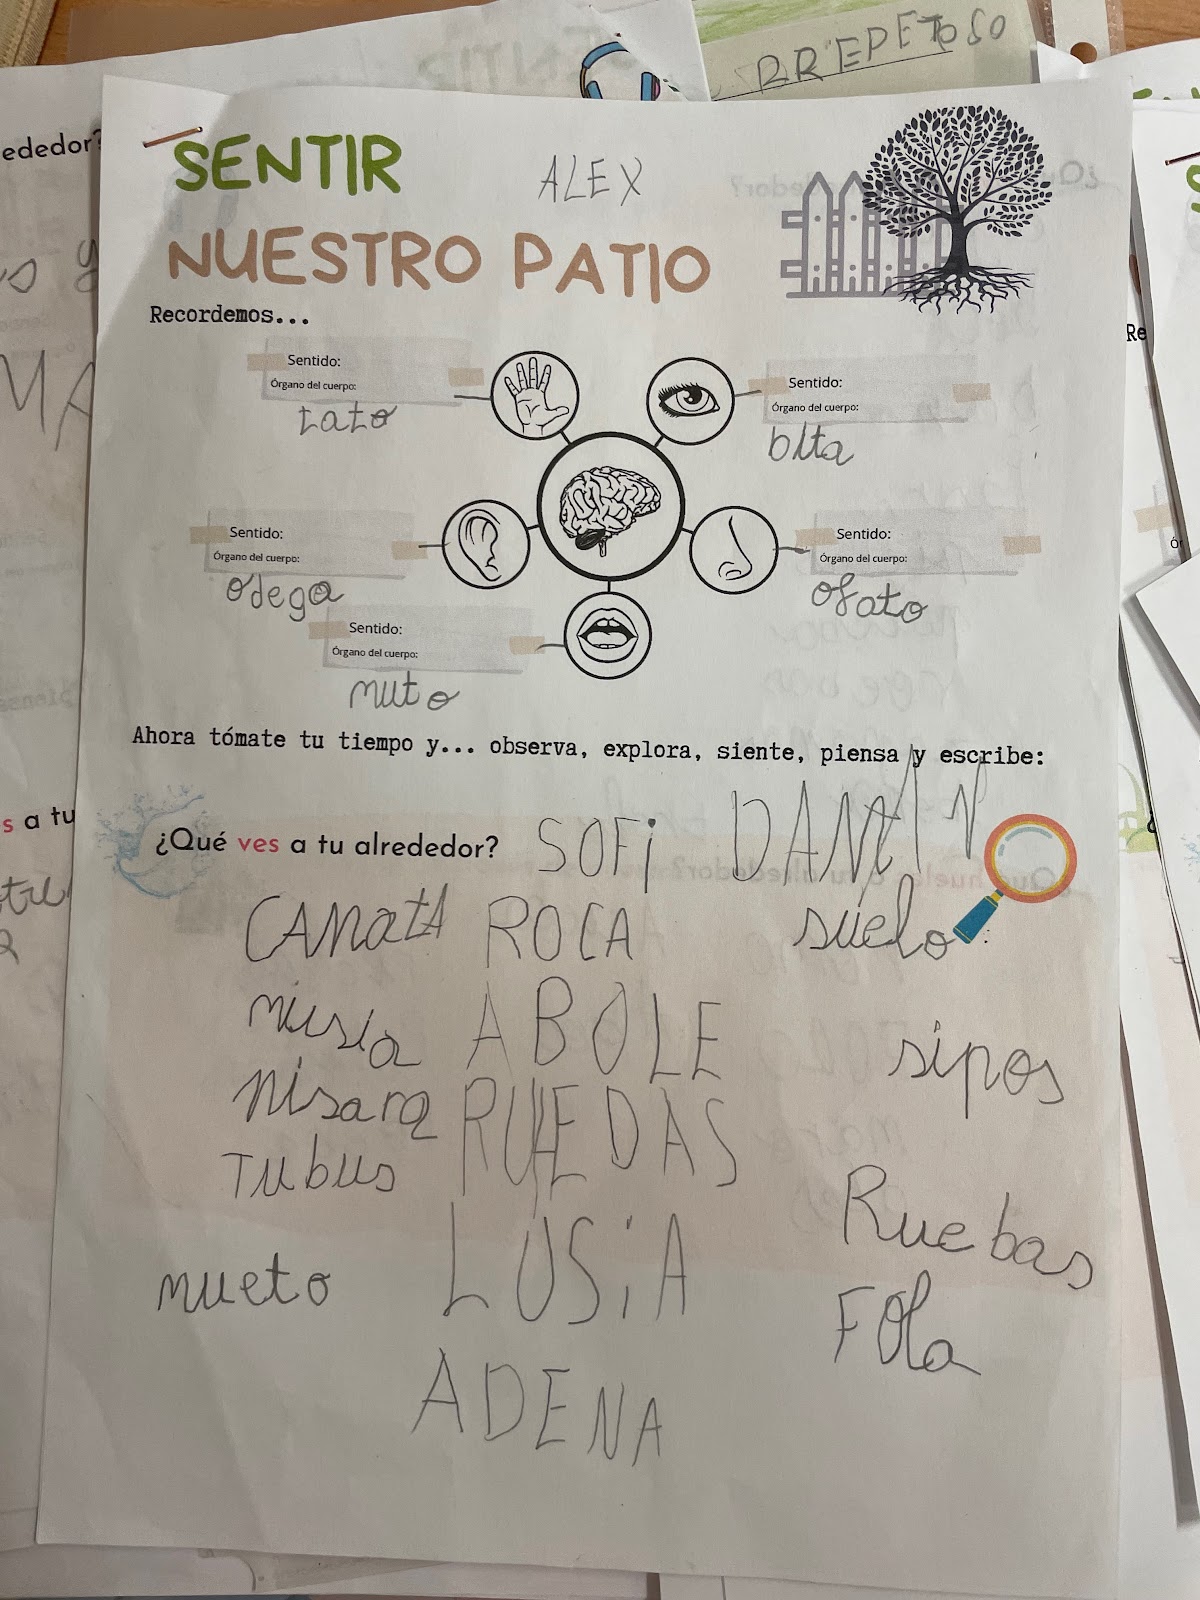 RREPETOSO
ededor?
SENTIR
ALEX
NUESTRO PATIO
Recordemos...
Sentido:
Órgano del cuerpo:
tato
Sentido:
Órgano del cuerpo:
blta
Sentido:
Órgano del cuerpo:
odega
Sentido:
Órgano del cuerpo:
ofato
Sentido:
Órgano del cuerpo:
muto
Ahora tómate tu tiempo y... observa, explora, siente, piensa y escribe:
s a tu
¿Qué ves a tu alrededor? SOFi
CANatA ROCA suelo
musia ABOLE sipos
nisara RUEDAS
Tubus Ruebas
nueto LUSiA Fola
ADENA
Re